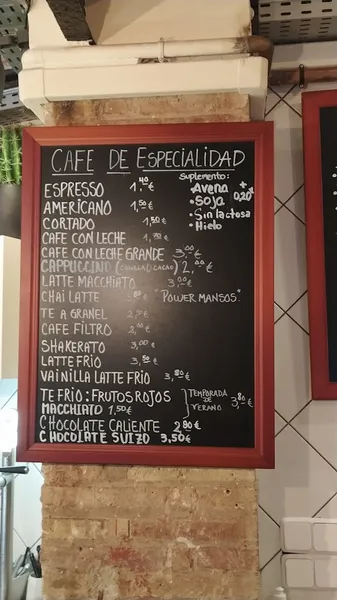 CAFE DE ESPECIALIDAD
ESPRESSO 1,40€
AMERICANO 1,50€
CORTADO 1,50€
CAFE CON LECHE 1,70€
CAFE CON LECHE GRANDE 3,00€
CAPPUCCINO (CANELA O CACAO) 2,00€
LATTE MACCHIATO 3,00€
CHAI LATTE "POWER MANSOS"
TE A GRANEL
CAFE FILTRO
SHAKERATO 3,00€
LATTE FRIO 3,50€
VAINILLA LATTE FRIO 3,80€
TE FRIO: FRUTOS ROJOS
MACCHIATO 1,50€
TEMPORADA DE VERANO 3,80€
CHOCOLATE CALIENTE 2,80€
CHOCOLATE SUIZO 3,50€
Suplemento:
• Avena
• Soja
• Sin lactosa
• Hielo
+0,20